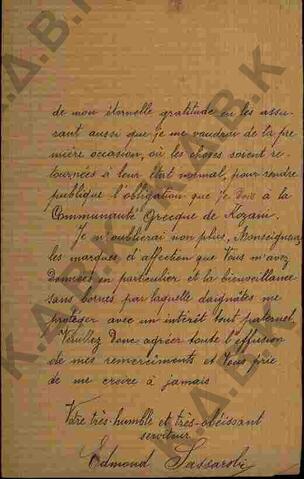 de mon éternelle gratitude en les assu-
rant aussi que je me vaudrai de la pre-
mière occasion, où les choses soient re-
tournées à leur état normal, pour rendre
publique l'obligation que je dois à la
Communauté Grecque de Kozani.
Je n'oublierai non plus, Monseigneur
les marques d'affection que Vous m'avez
données en particulier et la bienveillance
sans bornes par laquelle daignâtes me
protéger avec un intérêt tout paternel.
Veuillez donc agréer toute l'effusion
de mes remerciments et Vous prie
de me croire à jamais
Votre très-humble et très-obéissant
serviteur
Edmond
Κ.Δ.Β.Κ